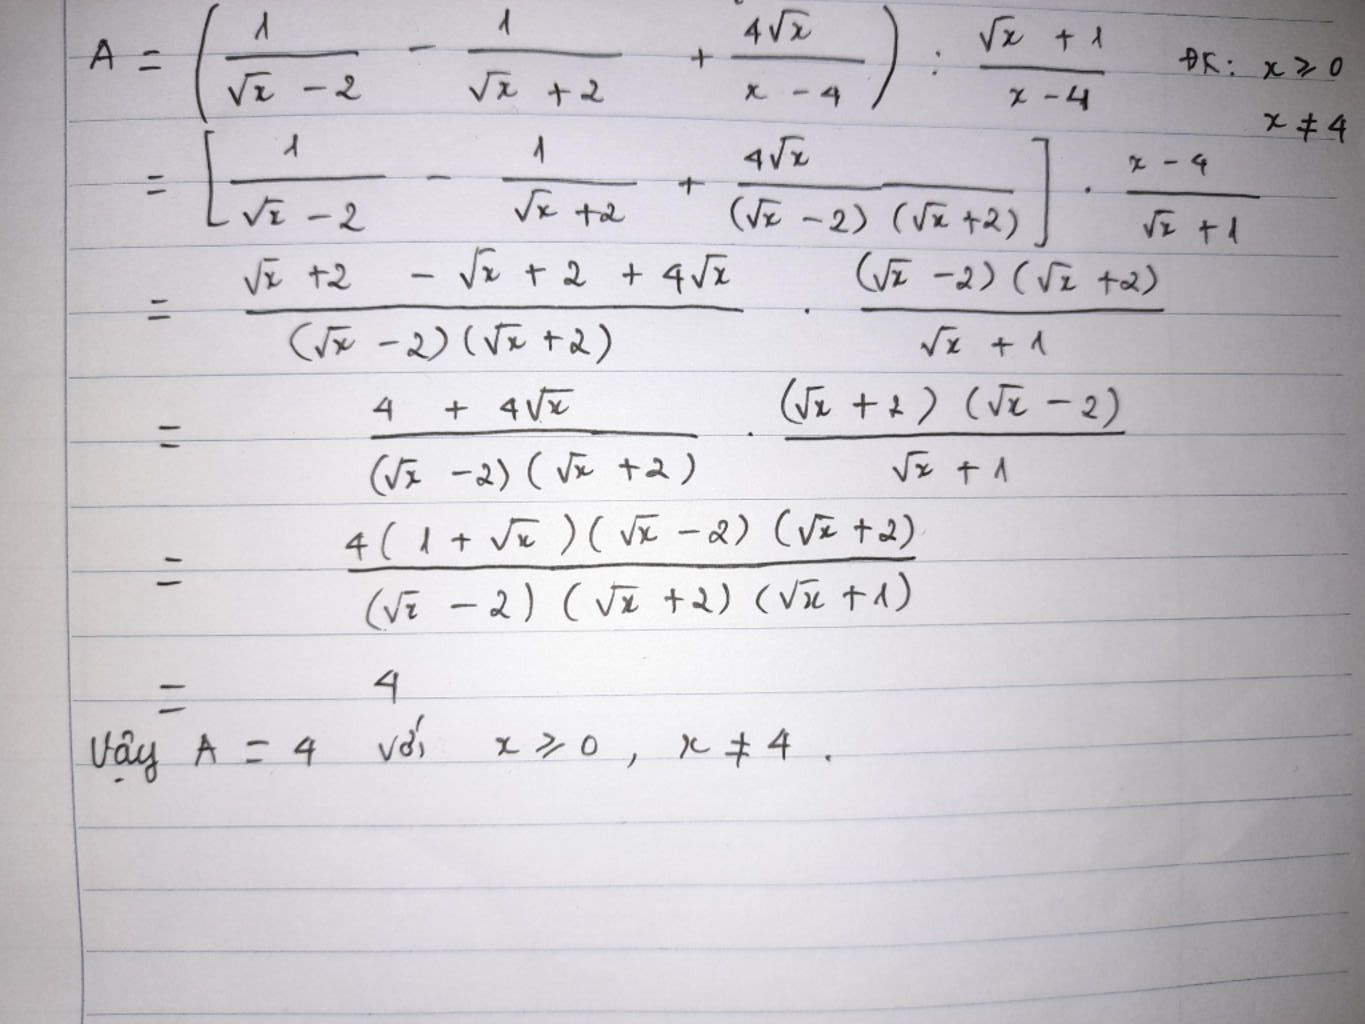 A = ( 1/(√x − 2) − 1/(√x + 2) + 4√x/(x − 4) ) : (√x + 1)/(x − 4) ĐK: x ⩾ 0
x ≠ 4
= [ 1/(√x − 2) − 1/(√x + 2) + 4√x/((√x − 2)(√x + 2)) ] . (x − 4)/(√x + 1)
= (√x + 2 − √x + 2 + 4√x)/((√x − 2)(√x + 2)) . ((√x − 2)(√x + 2))/(√x + 1)
= (4 + 4√x)/((√x − 2)(√x + 2)) . ((√x + 2)(√x − 2))/(√x + 1)
= (4(1 + √x)(√x − 2)(√x + 2))/((√x − 2)(√x + 2)(√x + 1))
= 4
Vậy A = 4 với x ⩾ 0, x ≠ 4.